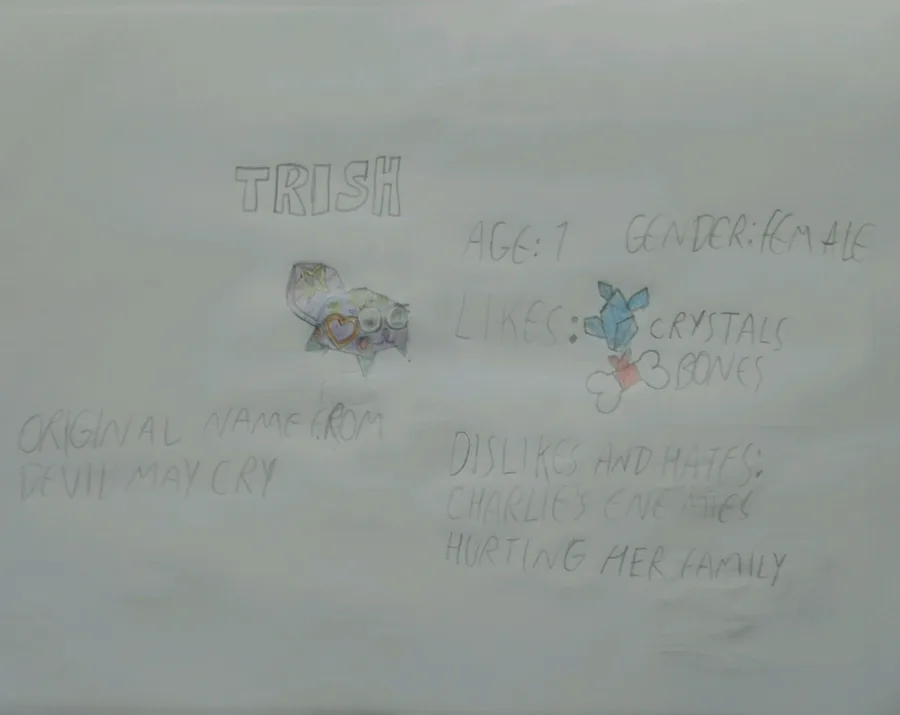 TRISH
AGE: 1 GENDER: FEMALE
LIKES: CRYSTALS
BONES
ORIGINAL NAME FROM
DEVIL MAY CRY
DISLIKES AND HATES:
CHARLIE'S ENEMIES
HURTING HER FAMILY